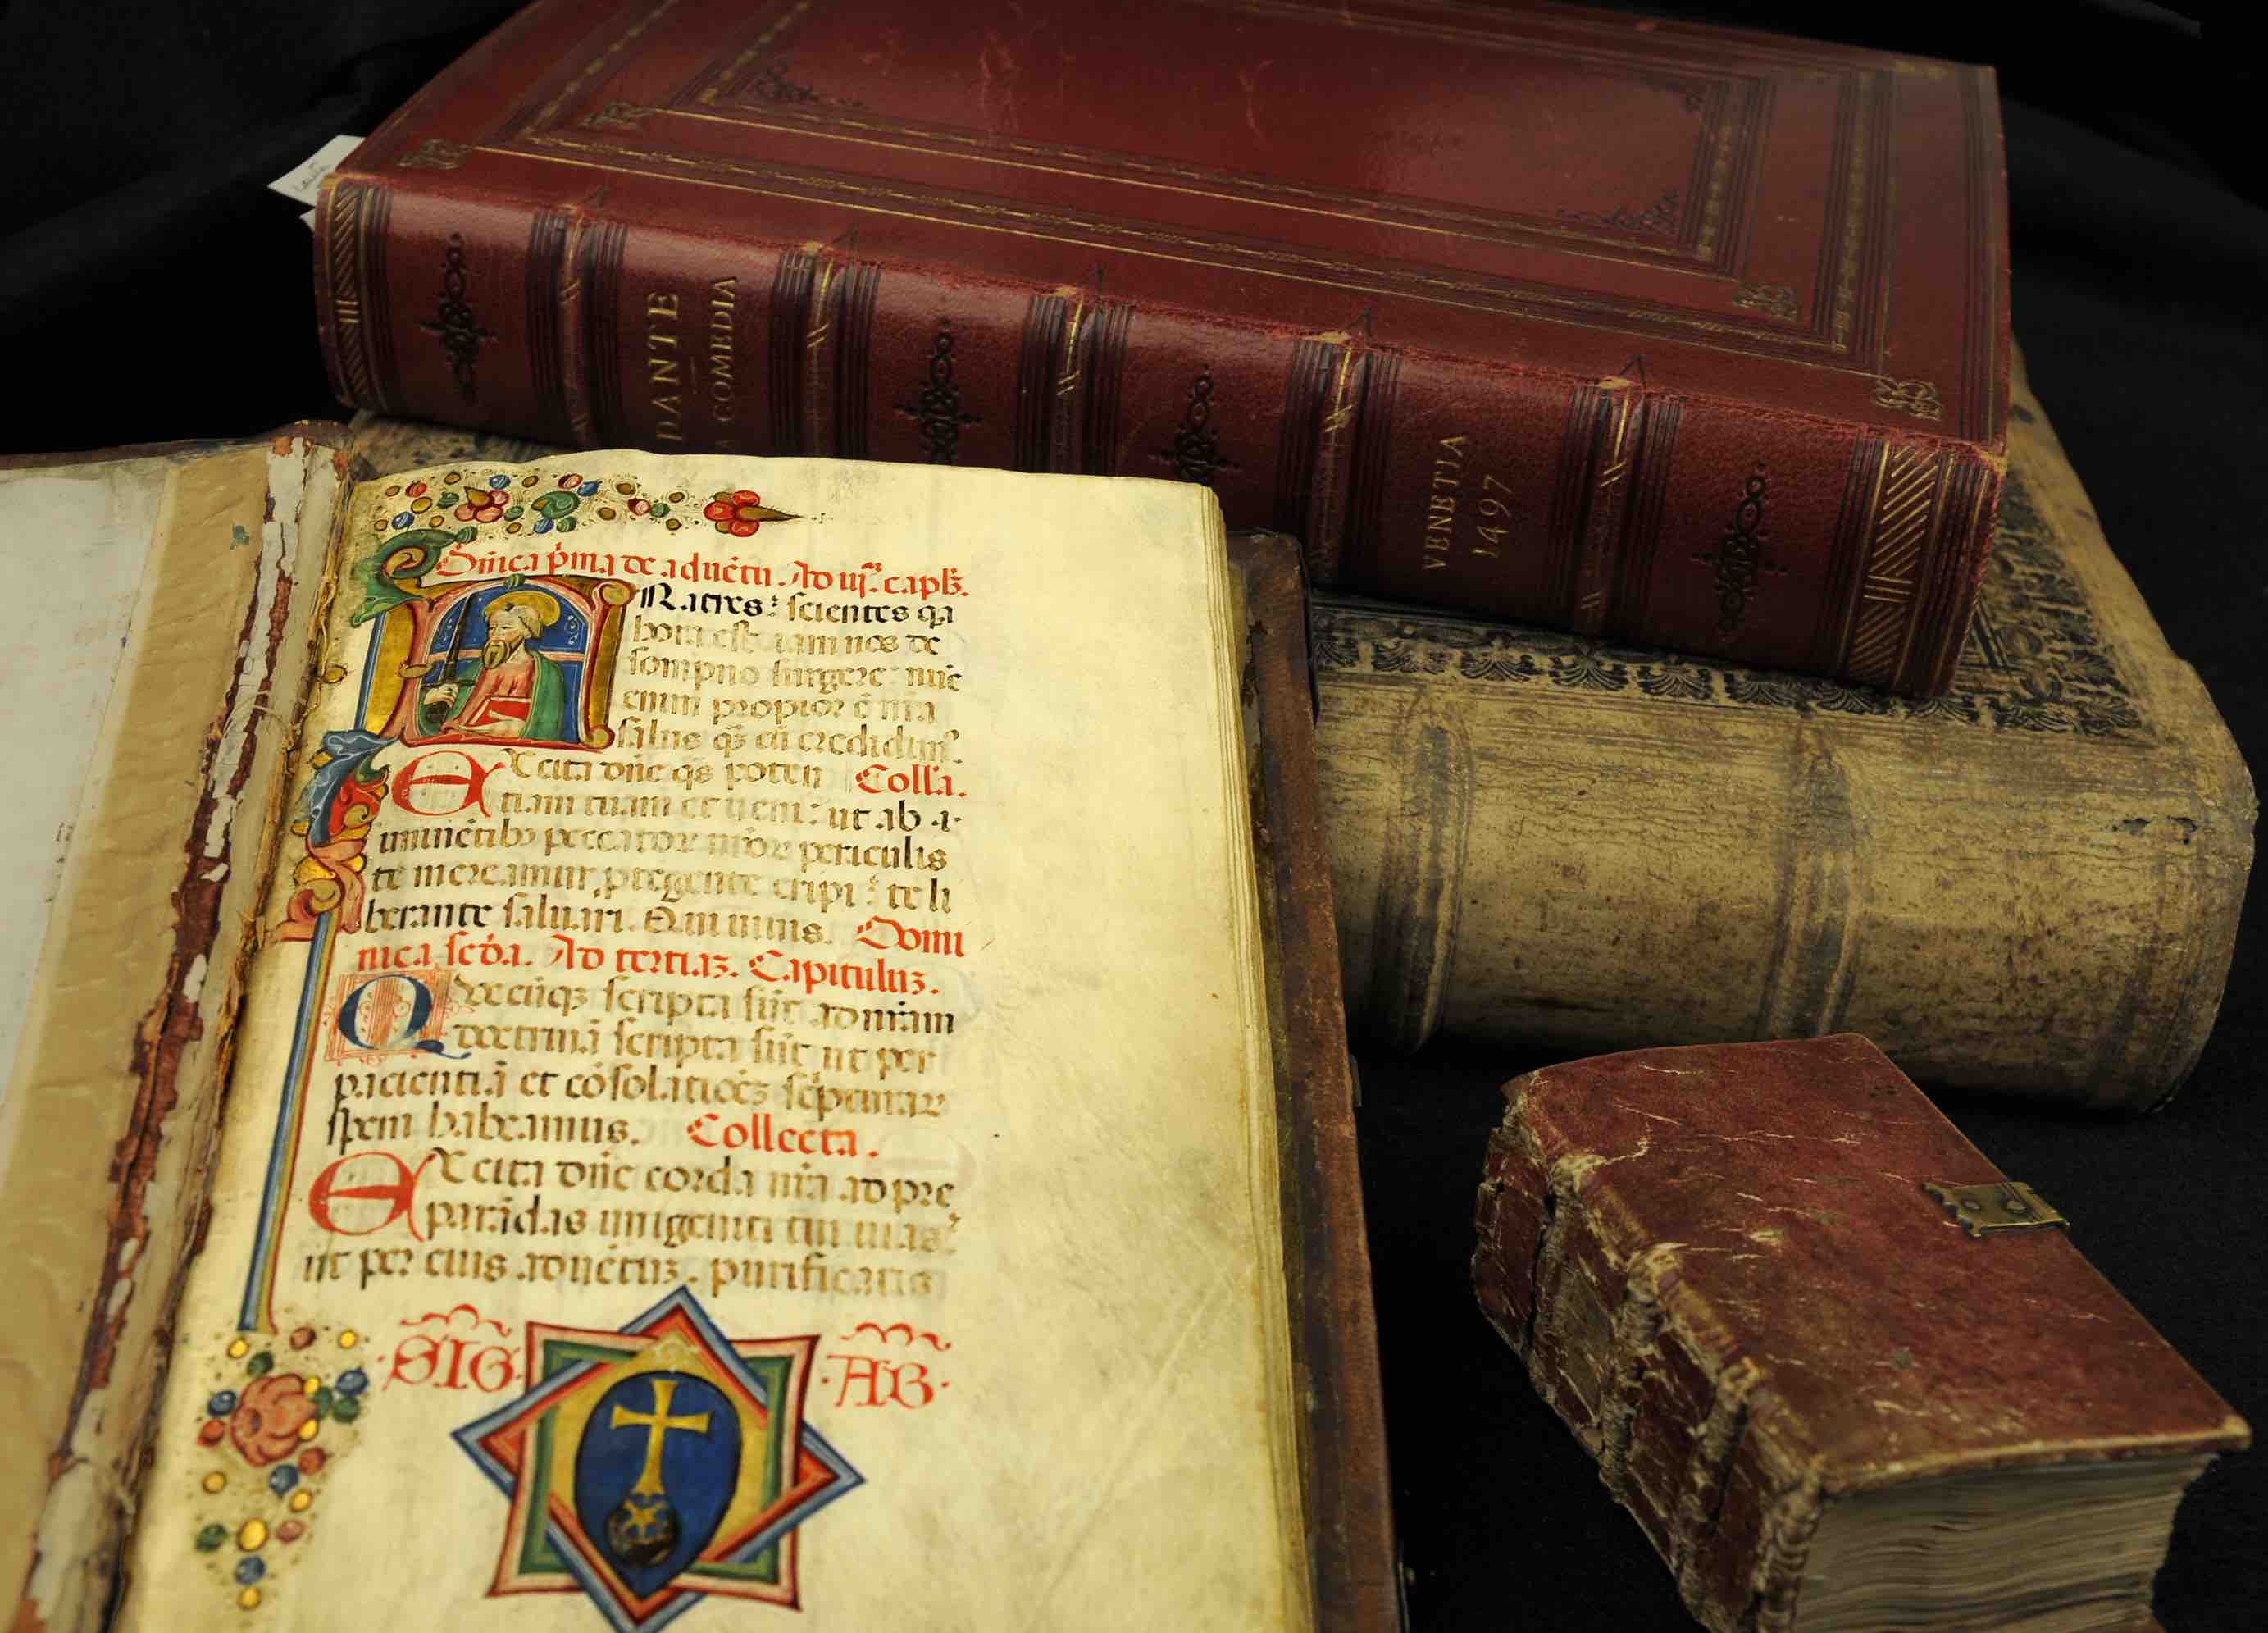 DANTE
A COMEDIA
VENETIA
1497
Dn̄ica p̄ma de aduētu. Ad iij.ᵃᵐ capłꝫ.
Ratres: scientes qa
hora est iam nos de
sompno surgere: nūc
enim propior ē nr̄a
salus qꝫ cū credidim᷒.
EXcita dn̄e qs̄ poten Coll̄a.
tiam tuam et ueni: ut ab i
minētibꝫ peccatoꝝ nr̄oꝝ periculis
te mereamur, ꝓtegente eripi: te li
berante saluari. Qui uiuis. Domi
nica scd̄a. Ad tertiaꝫ. Capituluꝫ.
Quecūqꝫ scripta sūt ad nr̄am
doctrinā scripta sūt ut per
pacientiā et cōsolationeꝫ sc̄pturaꝝ
spem habeamus. Collecta.
EXcita dn̄e corda nr̄a ad pre
parādas unigeniti tui uias:
ut per eius aduētuꝫ. purificatis
.SIG. .AB.